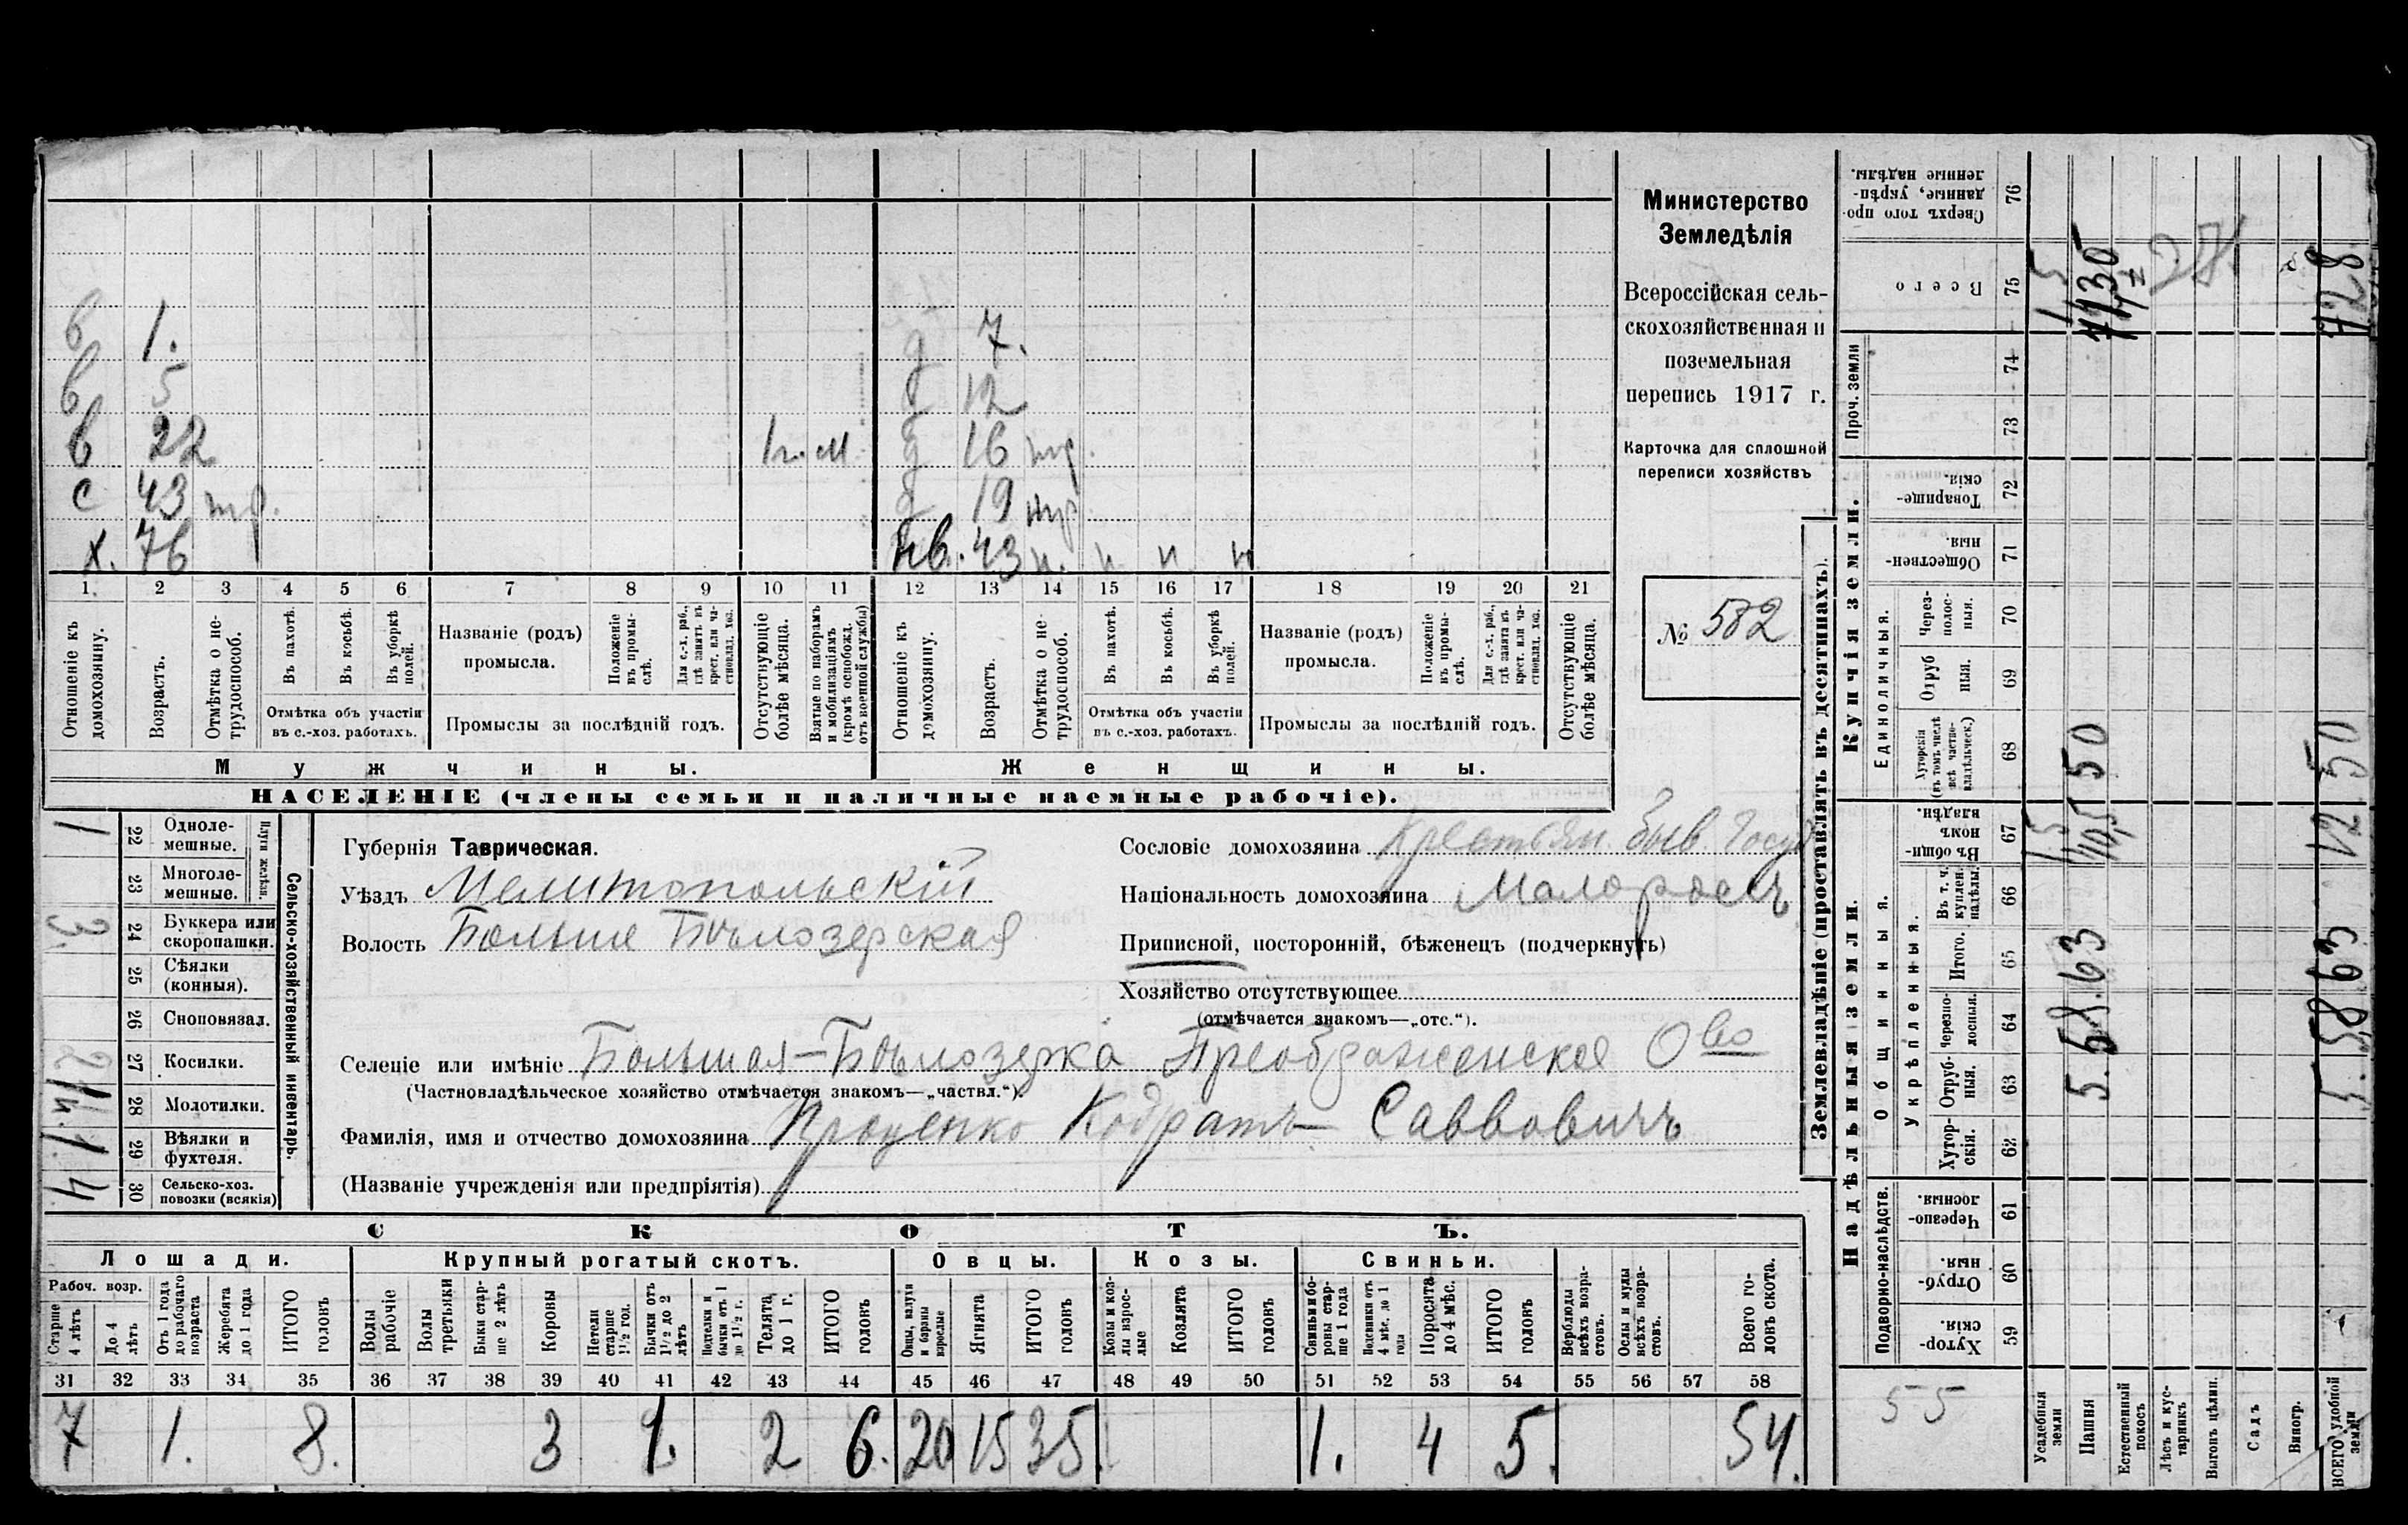 Министерство
Земледѣлія
Всероссійская сель-
скохозяйственная и
поземельная
перепись 1917 г.
Карточка для сплошной
переписи хозяйствъ
№ 582
в 1. д 7.
в 5 д 12
в 22 м д 16 нр.
с 43 д 19 нр
х. 76 43 н. н. н н
1. 2 3 4 5 6 7 8 9 10 11 12 13 14 15 16 17 18 19 20 21
Отношеніе къ домохозяину.
Возрастъ.
Отмѣтка о не-трудоспособ.
Въ пахотѣ.
Въ косьбѣ.
Въ уборкѣ полей.
Отмѣтка объ участіи
въ с.-хоз. работахъ.
Названіе (родъ)
промысла.
Положеніе въ промы-слѣ.
Для с.-х. раб., гдѣ занятъ въ крест. или ча-стновлад. хоз.
Промыслы за послѣдній годъ.
Отсутствующіе болѣе мѣсяца.
Взятые по наборамъ и мобилизаціямъ (кромѣ освобожд. отъ военной службы)
Отношеніе къ домохозяину.
Возрастъ.
Отмѣтка о не-трудоспособ.
Въ пахотѣ.
Въ косьбѣ.
Въ уборкѣ полей.
Отмѣтка объ участіи
въ с.-хоз. работахъ.
Названіе (родъ)
промысла.
Положеніе въ промы-слѣ.
Для с.-х. раб., гдѣ занята въ крест. или ча-стновлад. хоз.
Промыслы за послѣдній годъ.
Отсутствующіе болѣе мѣсяца.
Мужчины.
Женщины.
НАСЕЛЕНІЕ (члены семьи и наличные наемные рабочіе).
Сельско-хозяйственный инвентарь.
Плуги желѣзн.
22 Одноле-мешные. 1
23 Многоле-мешные.
24 Буккера или скоропашки. 3.
25 Сѣялки (конныя).
26 Сноповязал.
27 Косилки.
28 Молотилки.
29 Вѣялки и фухтеля. 1
30 Сельско-хоз. повозки (всякія) 4
Губернія Таврическая.
Уѣздъ Мелитопольскій
Волость Больше Бѣлозерская
Сословіе домохозяина Крестьян. быв. Госуд
Національность домохозяина Малоросъ
Приписной, посторонній, бѣженецъ (подчеркнуть)
Хозяйство отсутствующее
(отмѣчается знакомъ—„отс.“).
Селеціе или имѣніе Большая-Бѣлозерка Преображенское О во
(Частновладѣльческое хозяйство отмѣчается знакомъ—„частвл.“).
Фамилія, имя и отчество домохозяина Проценко Кодратъ Савовичъ
(Названіе учрежденія или предпріятія)
СКОТЪ.
Лошади. Крупный рогатый скотъ. Овцы. Козы. Свиньи.
Рабоч. возр.
Старше 4 лѣтъ
До 4 лѣтъ
Отъ 1 года до рабочаго возраста
Жеребята до 1 года
ИТОГО головъ
Волы рабочіе
Волы третьяки
Быки стар-ше 2 лѣтъ
Коровы
Нетели старше 1½ год.
Бычки отъ 1½ до 2 лѣтъ
Подтелки и бычки отъ 1 до 1½ г.
Телята до 1 г.
ИТОГО головъ
Овцы, валухи и бараны взрослые
Ягнята
ИТОГО головъ
Козы и коз-лы взрос-лые
Козлята
ИТОГО головъ
Свиньи и бо-ровы стар-ше 1 года
Подсвинки отъ 4 мѣс. до 1 года
Поросята до 4 мѣс.
ИТОГО головъ
Верблюды всѣхъ возра-стовъ.
Ослы и мулы всѣхъ возра-стовъ.
Всего го-ловъ скота.
31 32 33 34 35 36 37 38 39 40 41 42 43 44 45 46 47 48 49 50 51 52 53 54 55 56 57 58
7 1. 8. 3 1. 2 6. 20 15 35. 1. 4 5. 54.
Землевладѣніе (проставлять въ десятинахъ).
Надѣльныя земли.
Купчія земли.
Проч. земли
Сверхъ того про-данные, укрѣп-ленные надѣлы. 76
Всего 75
74
73
Товарище-скія. 72
Обществен-ныя. 71
Единоличныя.
Через-полос-ныя. 70
Отруб ныя. 69
Хуторскія (въ томъ числѣ всѣ частно-владѣльческ.) 68
Общинныя.
Въ общи-номъ владѣн. 67
Укрѣпленныя.
Въ т. ч. куплен. надѣлы. 66
Итого. 65
Черезпо-лосныя. 64
Отруб-ныя. 63
Хутор-скія. 62
Подворно-наслѣдств.
Черезпо-лосныя. 61
Отруб-ныя. 60
Хутор-скія. 59
55
Усадебныя земли
Пашня
Естественный покосъ
Лѣсъ и кус-тарникъ
Выгонъ цѣлин.
Садъ
Виногр.
ВСЕГО удобной земли